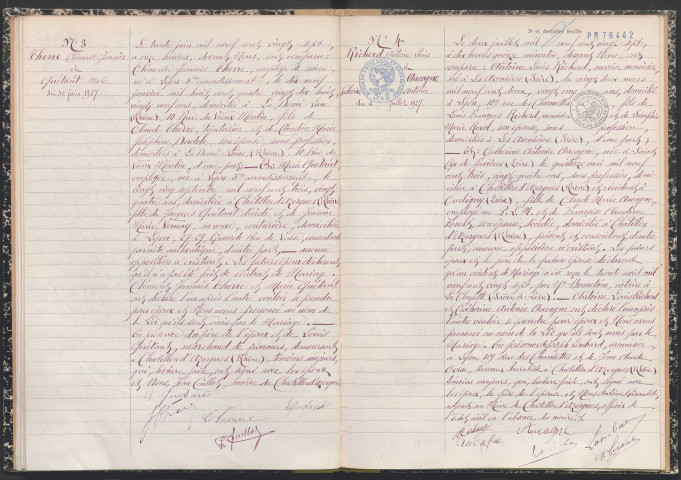 N° 3
Cherre Clément Jeannès
et
Guétant Marie
du 30 juin 1927
Le trente juin mil neuf cent vingt sept,
à onze heures, devant Nous ont comparu :
Clément Jeannès Cherre, employé de soierie,
né à Lyon 5me arrondissement, le dix neuf
janvier mil huit cent quatre vingt dix huit,
vingt neuf ans, domicilié à La Demi-Lune
(Rhône), 10 Rue du Vieux Moulin, fils de
Claude Cherre, teinturier et de Claudine Marie
Joséphine, son épouse, sans profession,
domiciliés à La Demi-Lune (Rhône), 10 Rue du
Vieux Moulin, d'une part; - Et Marie Guétant,
employée, née à Lyon 5me arrondissement, le
vingt cinq septembre mil neuf cent trois, vingt
quatre ans, domiciliée à Chatillon d'Azergues (Rhône)
fille de Jacques Guétant décédé et de Jeanne
Marie Vernay, sa veuve, couturière, domiciliée
à Lyon, 27-29 Grande Rue de Vaise, consentante
d'autre part; aucune
opposition n'existant. Les futurs époux déclarent
qu'il n'a pas été fait de contrat de Mariage.
Clément Jeannès Cherre et Marie Guétant
ont déclaré l'un après l'autre vouloir se prendre
pour époux et Nous avons prononcé au nom de
la Loi qu'ils sont unis par le Mariage.
En présence du père de l'époux et de Louis
Guétant, marchand de primeurs, demeurant
à Chatillon d'Azergues (Rhône), témoins majeurs,
qui, lecture faite, ont signé avec les époux
et Nous, Jean Caillot, maire de Chatillon d'Azergues.
Cherre
N° 4
Richard Antoine Louis
et
Aucagne
Catherine Antoine
du 2 juillet 1927.
3e et dernière feuille
PM 76442
Le deux juillet mil neuf cent vingt sept,
à dix heures quinze minutes, devant Nous, ont
comparu : Antoine Louis Richard, ouvrier menuisier,
né à Les Avenières (Isère), le vingt deux mars
mil neuf cent deux, vingt cinq ans, domicilié
à Lyon, 109 rue des Charmettes, fils de
Louis François Richard, menuisier et de Joséphine
Marie, son épouse, sans profession,
domiciliés à Les Avenières (Isère), d'une part;
- Et Catherine Antoine Aucagne, née à Saint
Cyr de Favières (Loire), le quatorze mai mil neuf
cent trois, vingt quatre ans, sans profession, domi-
ciliée à Chatillon d'Azergues (Rhône) et résidant à
(Loire), fille de Claude Marie Aucagne,
employé au P.L.M. et de Françoise Claudine
son épouse, décédée, domicilié à Chatillon
d'Azergues (Rhône), présent et consentant d'autre
part; aucune opposition n'existant. Les futurs
époux et le père de la future épouse déclarent
qu'un contrat de Mariage a été reçu le trente avril mil
neuf cent vingt sept, par Me, notaire à
La Clayette (Saône-et-Loire). - Antoine Louis Richard
et Catherine Antoine Aucagne ont déclaré l'un après
l'autre vouloir se prendre pour époux et Nous avons
prononcé au nom de la Loi qu'ils sont unis par le
Mariage. - En présence de Joseph Lombard, menuisier,
à Lyon 109 rue des Charmettes et de Jean Claude
à Chatillon d'Azergues (Rhône)
témoins majeurs, qui, lecture faite, ont signé avec
les époux, le père de l'épouse et Nous,
adjoint au Maire de Chatillon d'Azergues, officier de
l'état civil en l'absence du maire.
Richard
Aucagne
Aucagne
Lombard